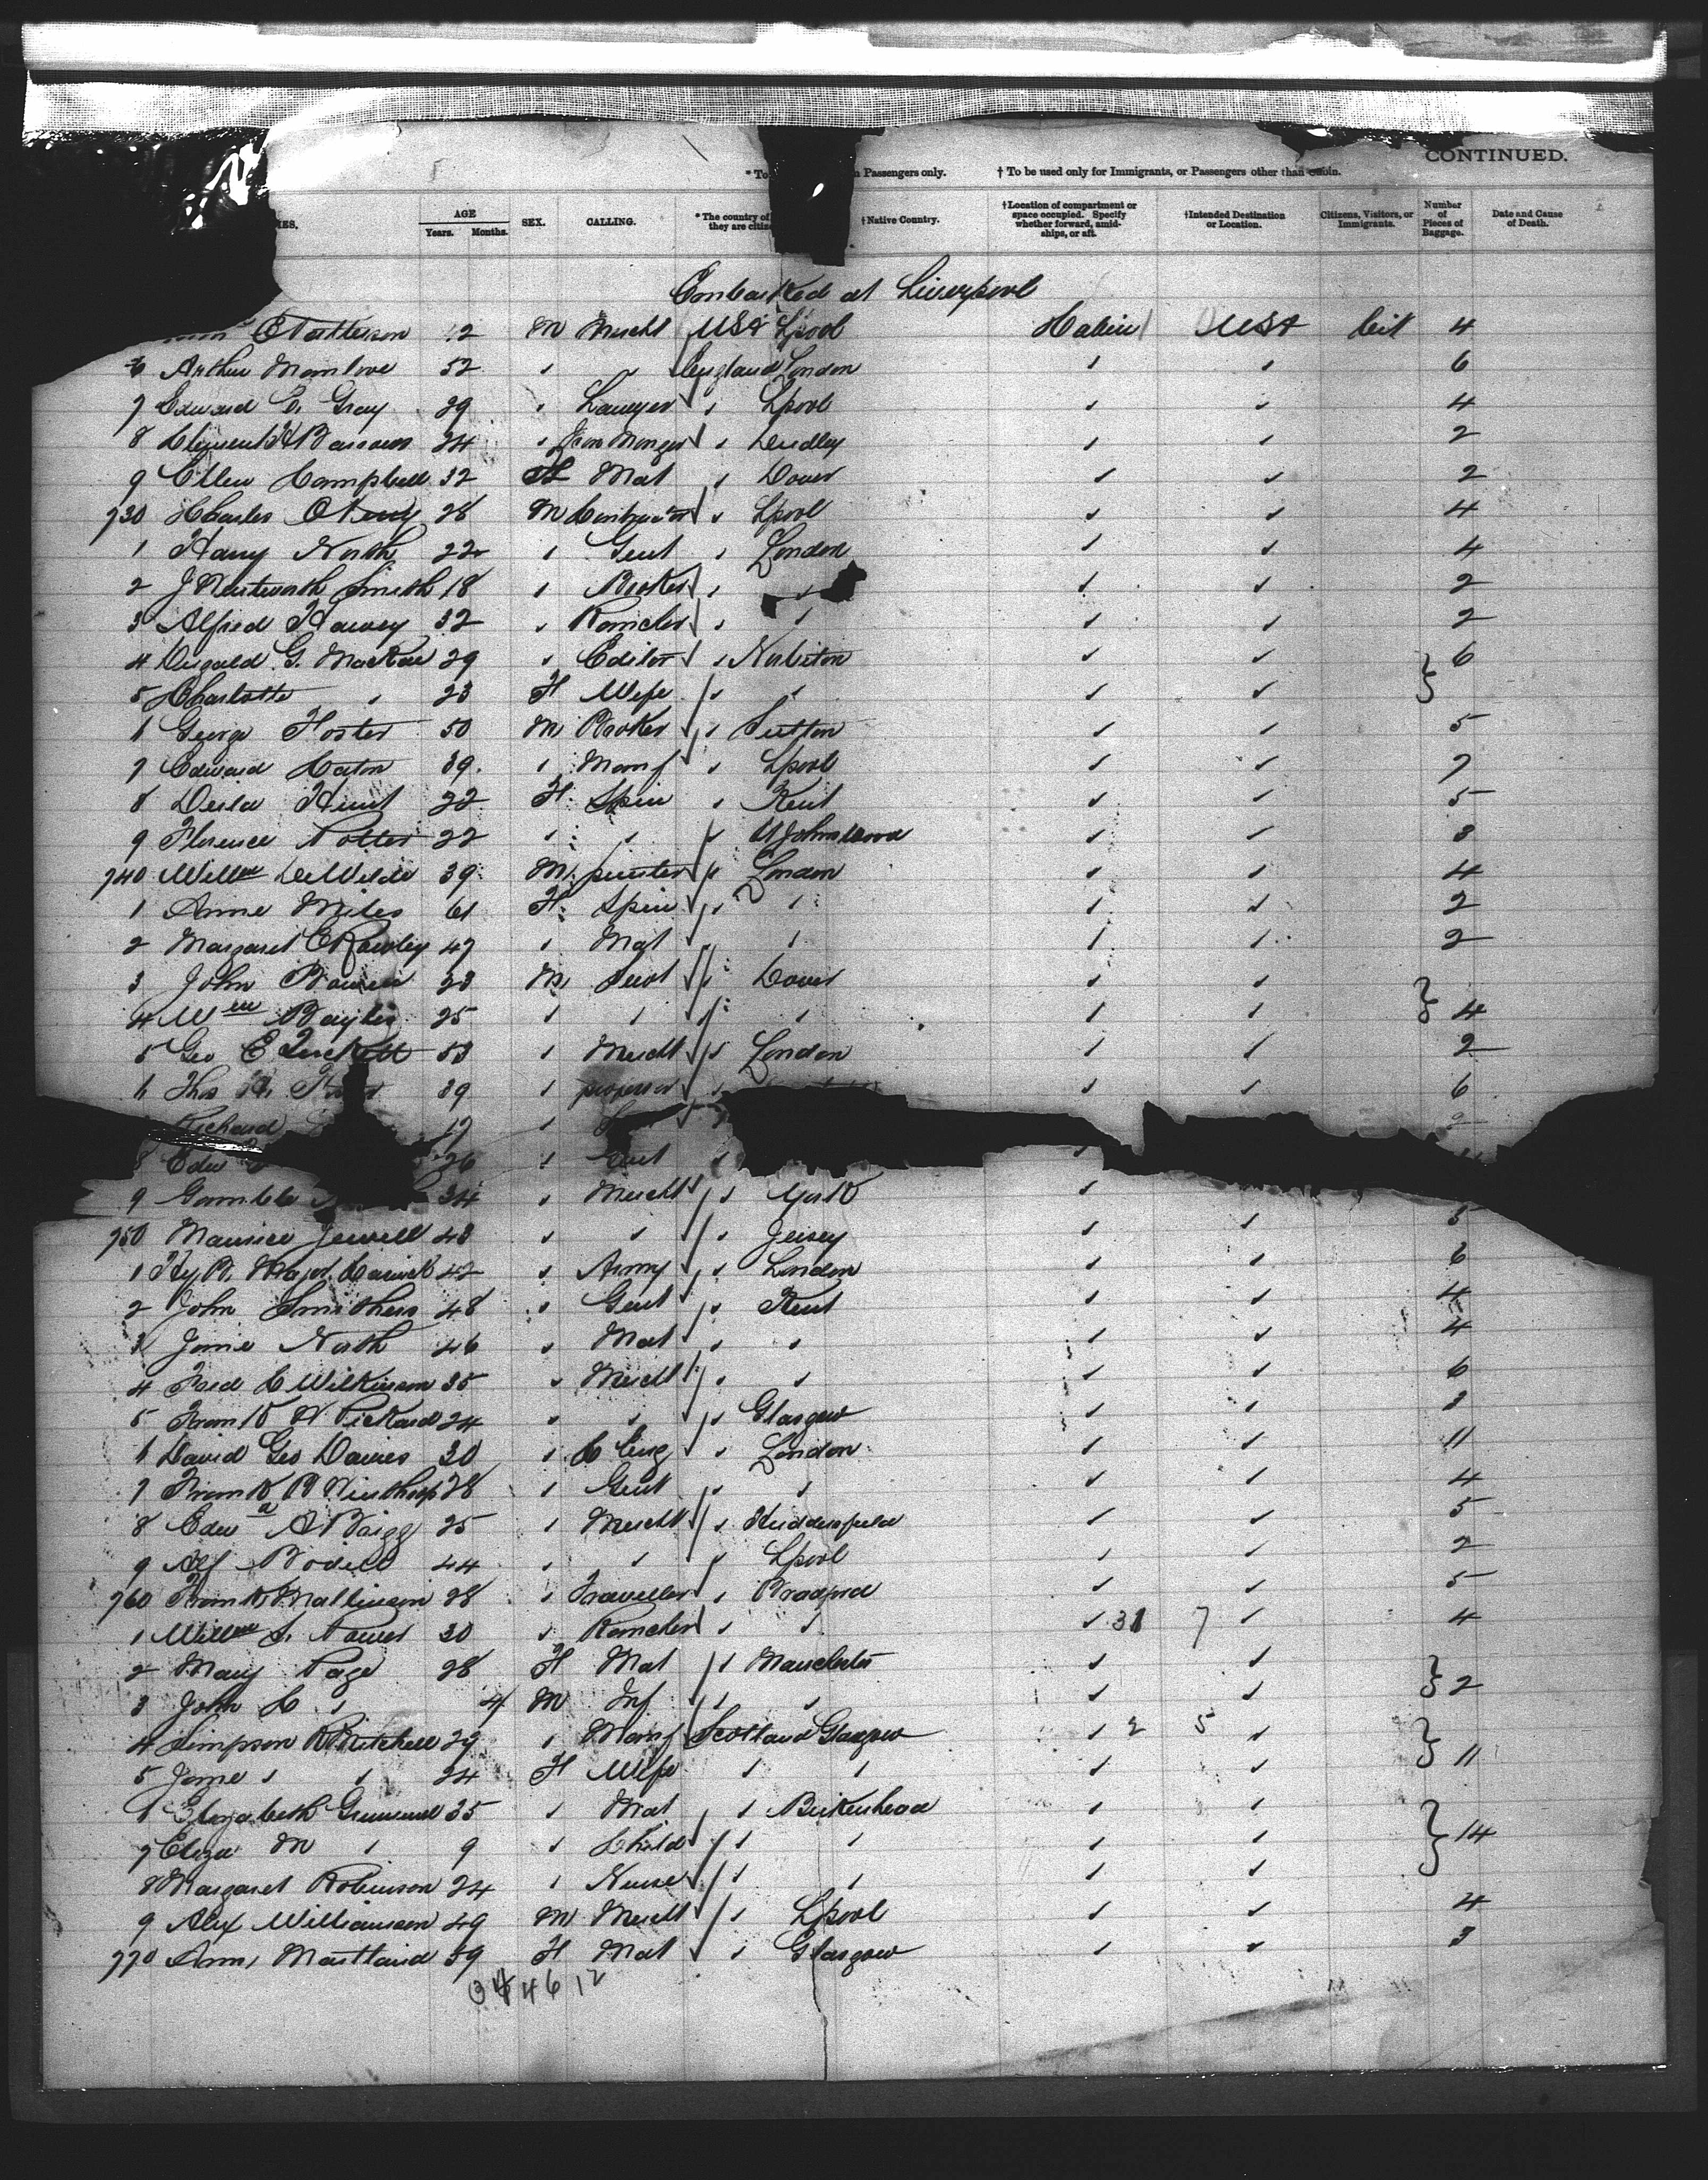 CONTINUED.
* To Passengers only. † To be used only for Immigrants, or Passengers other than Cabin.
MES. AGE Years. Months. SEX. CALLING. * The country of they are citiz † Native Country. † Location of compartment or space occupied. Specify whether forward, amidships, or aft. † Intended Destination or Location. Citizens, Visitors, or Immigrants. Number of Pieces of Baggage. Date and Cause of Death.
Embarked at Liverpool
E Patterson 42 M Mercht USA Lpool Cabin USA Cit 4
6 Arthur Manlove 52 " " England London " " 6
7 Edward E. Gray 29 " Lawyer " Lpool " " 4
8 Clement H Barrows 24 " Iron Monger " Dudley " " 2
9 Ellen Campbell 32 F Mat " Dover " " 2
730 Charles O'Neill 28 M Contractor " Lpool " " 4
1 Harry North 22 " Gent " London " " 4
2 J Wentworth Smith 18 " Broker " " " " 2
3 Alfred Harvey 32 " Rancher " " " " 2
4 Dugald G. MacKae 29 " Editor " " " 6
5 Charlotte " 23 F Wife " " " "
6 George Foster 50 M Broker " Sutton " " 5
7 Edward Caton 39 " Manf " Lpool " " 7
8 Delia Hunt 22 F Spin " Kent " " 5
9 Florence Potter 22 " " " St Johns Wood " " 3
740 Willm DeWilde 39 M " London " " 4
1 Anne Miles 61 F Spin " " " " 2
2 Margaret E Rowley 47 " Mat " " " " 2
3 John Bowen 23 M Servt " Dover " "
4 Wm Bayliss 25 " " " " " " 4
5 Geo E 53 " Mercht " London " " 2
6 Thos 39 " professor " " " 6
Richard 19 "
8 Edw 26 " Gent "
9 Gamble 34 " Mercht " York "
750 Maurice Jewell 43 " " " Jersey " " 5
1 Hy B. Major 42 " Army " London " " 6
2 John Smithers 48 " Gent " Kent " " 4
3 Jane North 46 " Mat " " " " 4
4 Fred C Wilkinson 35 " Mercht " " " " 6
5 Frank W Pickard 24 " " " Glasgow " " 3
6 David Geo Davies 30 " C Eng " London " " 11
7 Frank B Winthrop 28 " Gent " " " " 4
8 Edwd A Brigg 25 " Mercht " Huddersfield " " 5
9 Alf Bodell 44 " " " Lpool " " 2
760 Frank Mallinson 28 " Traveller " Bradford " " 5
1 Willm S. Power 30 " Rancher " " " 31 7 " 4
2 Mary Page 28 F Mat " Manchester " "
3 John C " 4 M Inf " " " " 2
4 Simpson R Mitchell 29 " Manf Scotland Glasgow " 2 5 "
5 Jane " " 24 F Wife " " " " 11
6 Elizabeth 35 " Mat " Birkenhead " "
7 Eliza M " 9 " Child " " " " 14
8 Margaret Robinson 24 " Nurse " " " "
9 Alex Williamson 49 M Mercht " Lpool " " 4
770 Ann Maitland 59 F Mat " Glasgow " " 3